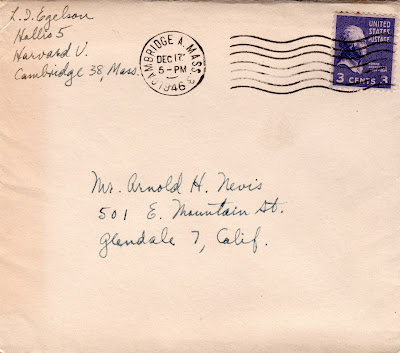 L. I. Egelson
Hollis 5
Harvard U.
Cambridge 38, Mass.
CAMBRIDGE A, MASS.
DEC 17
5 - PM
1946
UNITED
STATES
POSTAGE
3 CENTS 3
Mr. Arnold H. Nevis
501 E. Mountain St.
Glendale 7, Calif.